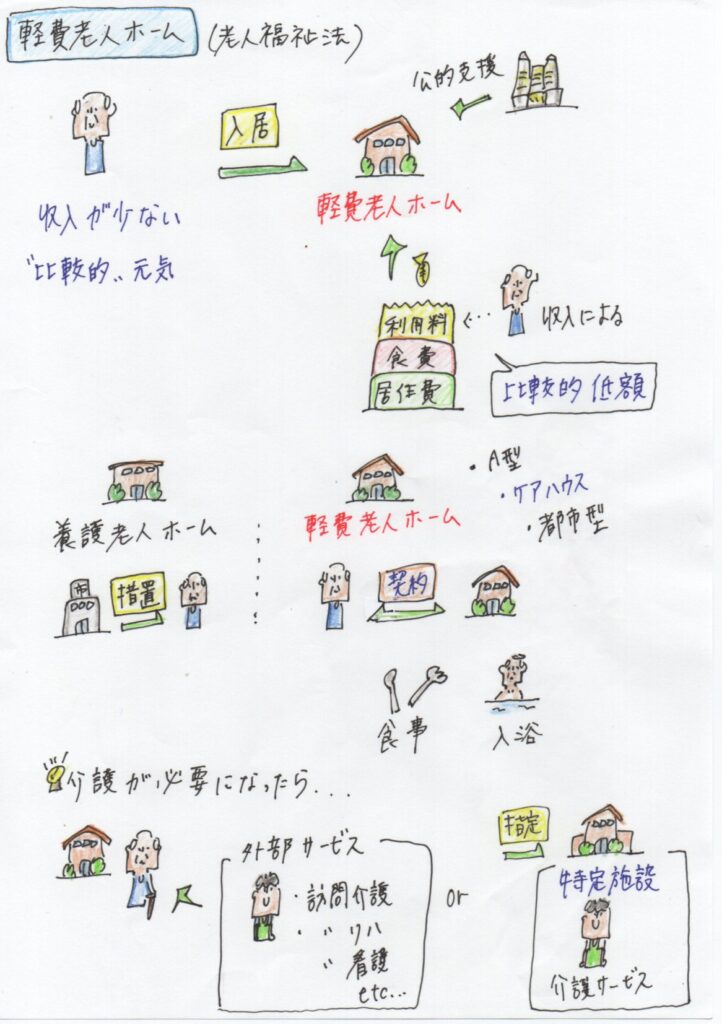 軽費老人ホーム (老人福祉法)
公的支援
入居
収入が少ない
"比較的" 元気
軽費老人ホーム
利用料
食費
居住費
収入による
比較的低額
養護老人ホーム
市
措置
軽費老人ホーム
・A型
・ケアハウス
・都市型
契約
食事
入浴
介護が必要になったら...
外部サービス
・訪問介護
・〃リハ
〃看護
etc...
or
指定
特定施設
介護サービス